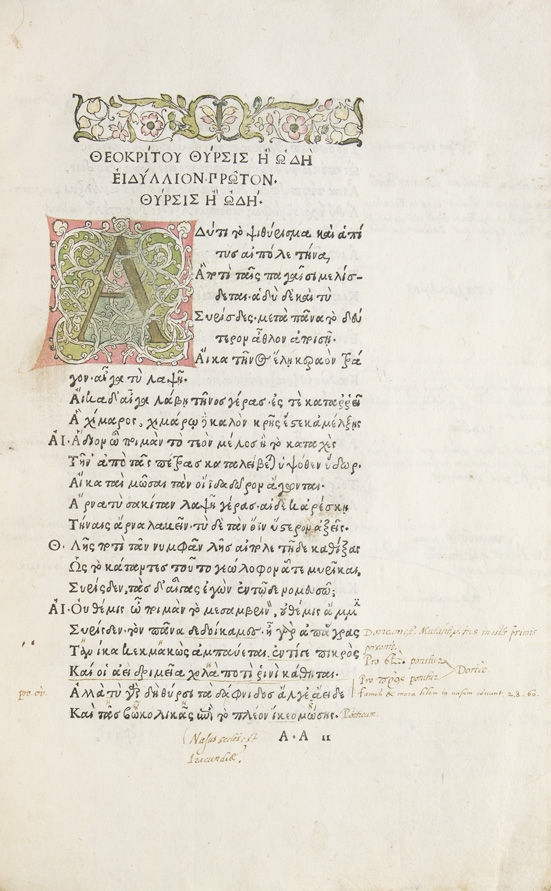 ΘΕΟΚΡΙΤΟΥ ΘΥΡΣΙΣ Ἢ ᾨΔῊ
ΕἸΔΥΛΛΙΟΝ ΠΡΩΤΟΝ·
ΘΥΡΣΙΣ Ἢ ᾨΔΗ·
Αδύ τι τὸ ψιθύρισμα καὶ ἁ πί
τυς αἰπόλε τήνα,
Ἃ ποτὶ ταῖς παγαῖσι μελίσ-
δεται· ἁδὺ δὲ καὶ τὺ
Συρίσδες· μετὰ πᾶνα τὸ δεύ
τερον ἆθλον ἀποισῇ·
Αἴκα τῆνος ἕλῃ κεραὸν τρά
γον· αἶγα τὺ λαψῇ·
Αἴκα δ' αἶγα λάβῃ τῆνος γέρας· ἐς τὲ καταρρεῖ
Ἁ χίμαρος, χιμάρῳ δὲ καλὸν κρῆς ἔστε κ' ἀμέλξῃς
ΑΙ· Ἅδιον ὦ ποιμὰν τὸ τεὸν μέλος ἢ τὸ καταχὲς
Τῆν' ἀπὸ τᾶς πέτρας καταλείβεται ὑψόθεν ὕδωρ·
Αἴκα ταὶ μῶσαι τὰν οἴϊδα δῶρον ἄγωνται·
Ἄρνα τὺ σακίταν λαψῇ γέρας· αἰ δέ κ' ἀρέσκῃ
Τήναις ἄρνα λαβεῖν· τὺ δὲ τὰν ὄϊν ὕστερον ἀξεῖς·
Θ· Λῇς ποτὶ τᾶν νυμφᾶν λῇς αἰπόλε τῇδε καθίξας
Ὡς τὸ κάταντες τοῦτο γεώλοφον ᾇτε μυρῖκαι,
Συρίσδεν, τὰς δ' αἶγας ἐγὼν ἐν τῷδε νομευσῶ;
ΑΙ· Οὐ θέμις ὦ ποιμὰν τὸ μεσαμβρινὸν, οὐ θέμις ἄμμιν
Συρίσδεν· τὸν πᾶνα δεδοίκαμες· ἦ γὰρ ἀπ' ἄγρας
Τανίκα κεκμακὼς ἀμπαύεται· ἐντί γε πικρὸς
Καὶ οἱ ἀεὶ δριμεῖα χολὰ ποτὶ ῥινὶ κάθηται·
Ἀλλὰ τὺ γὰρ δὴ θύρσι τὰ δάφνιδος ἄλγε' ἀείδε
Καὶ τᾶς βωκολικᾶς ἐπὶ τὸ πλέον ἵκεο μώσης·
Pro πρὸς ponitur Dorice
Poeticum.
Α·Α ΙΙ
Nasus sedes est
Iracundiæ.